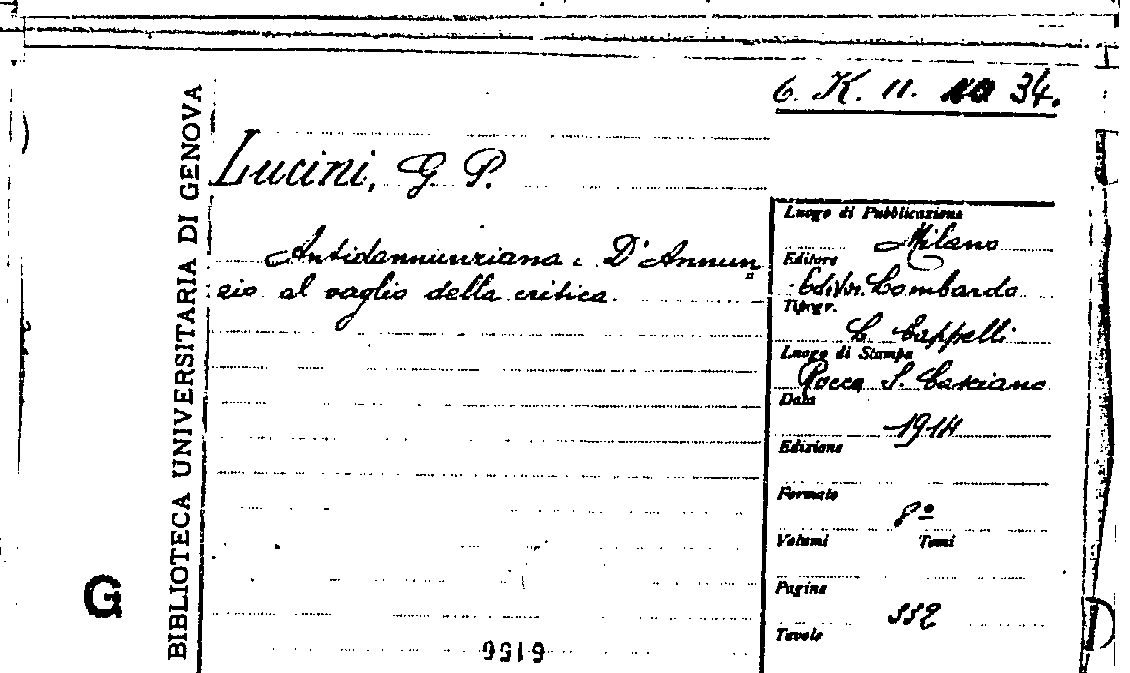 6. K. 11. 34.
BIBLIOTECA UNIVERSITARIA DI GENOVA
Lucini, G. P.
Antidannunziana. D'Annun
zio al vaglio della critica.
Luogo di Pubblicazione
Milano
Editore
Editr. Lombarda
Tipogr.
L. Cappelli
Luogo di Stampa
Rocca S. Casciano
Data
1914
Edizione
Formato
8º
Volumi Tomi
Pagine
Tavole
G